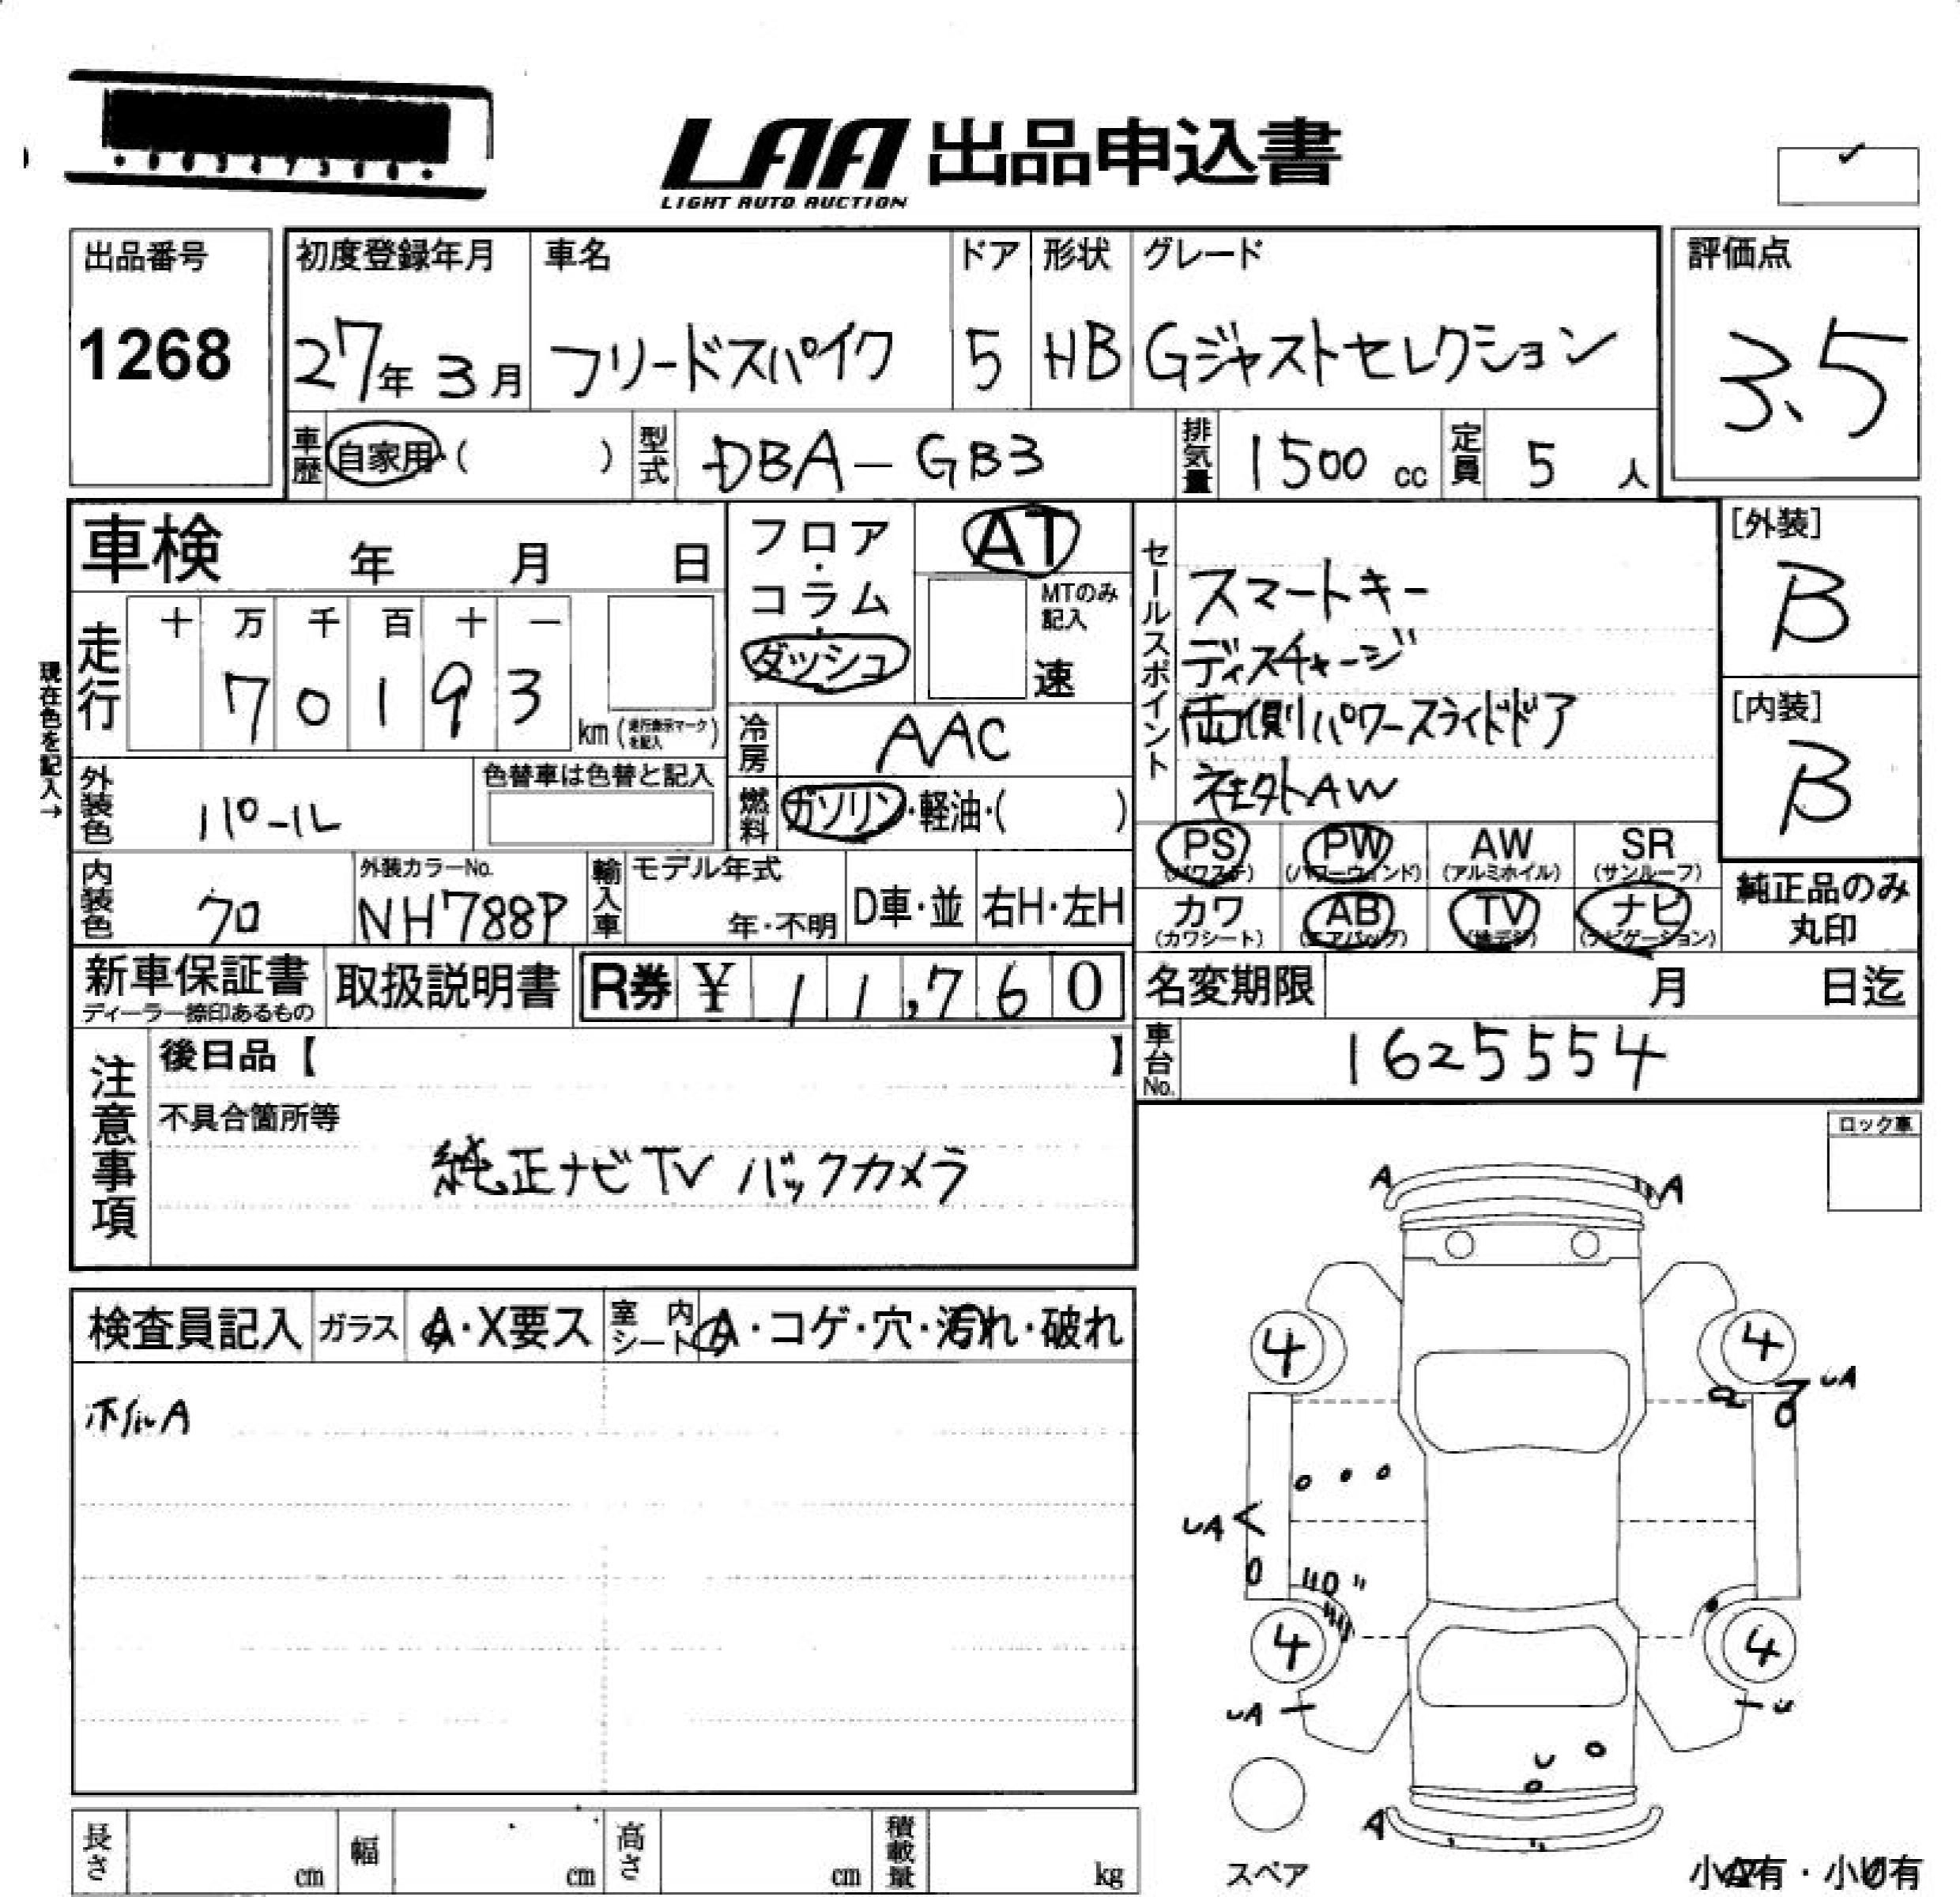 LAA 出品申込書
LIGHT AUTO AUCTION
出品番号
1268
初度登録年月 車名 ドア 形状 グレード
27年 3月 フリードスパイク 5 HB Gジャストセレクション
評価点
3.5
車歴 自家用・( ) 型式 DBA-GB3 排気量 1500 cc 定員 5 人
車検 年 月 日
フロア・コラム・ダッシュ
AT
MTのみ記入
速
現在色を記入→
走行 十 万 千 百 十 一
7 0 1 9 3 km (走行表示マークを記入)
冷房 AAC
外装色 パール
色替車は色替と記入
燃料 ガソリン・軽油・( )
内装色 クロ
外装カラーNo.
NH788P
輸入車 モデル年式
年・不明
D車・並 右H・左H
セールスポイント
スマートキー
ディスチャージ
両側パワースライドドア
社外AW
[外装]
B
[内装]
B
PS PW AW SR
(パワステ) (パワーウィンド) (アルミホイル) (サンルーフ)
カワ AB TV ナビ
(カワシート) (エアバック) (地デジ) (ナビゲーション)
純正品のみ
丸印
新車保証書
ディーラー捺印あるもの
取扱説明書
R券 ¥ 11,760
名変期限 月 日迄
車台No. 1625554
注意事項
後日品【 】
不具合箇所等
純正ナビTV バックカメラ
ロック車
検査員記入 ガラス A・X要ス 室内シート A・コゲ・穴・汚れ・破れ
ホイルA
A A
4 4
UA
UA
4 4
UA U
U
A
スペア
長さ cm 幅 cm 高さ cm 積載量 kg
小A有・小U有